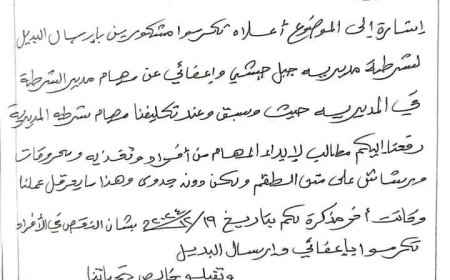 إشارة إلى الموضوع أعلاه تكرموا مشكورين بإرسال البديل
لشرطة مديريه جبل حبشي وإعفائي عن مهام مدير الشرطة
في المديريه حيث وسبق وعند تكليفنا مهام شرطه المديرية
رفعنا اليكم مطالب لإبداء المهام من أفراد وتغذيه ومحروقات
ورشاش على متن الطقم ولكن دون جدوى وهذا ما يعرقل عملنا
وكانت أخر مذكرة لكم بتاريخ ١٩/ بشان النقص في الأفراد
تكرموا بإعفائي وإرسال البديل
وتقبلو خالص تحياتنا